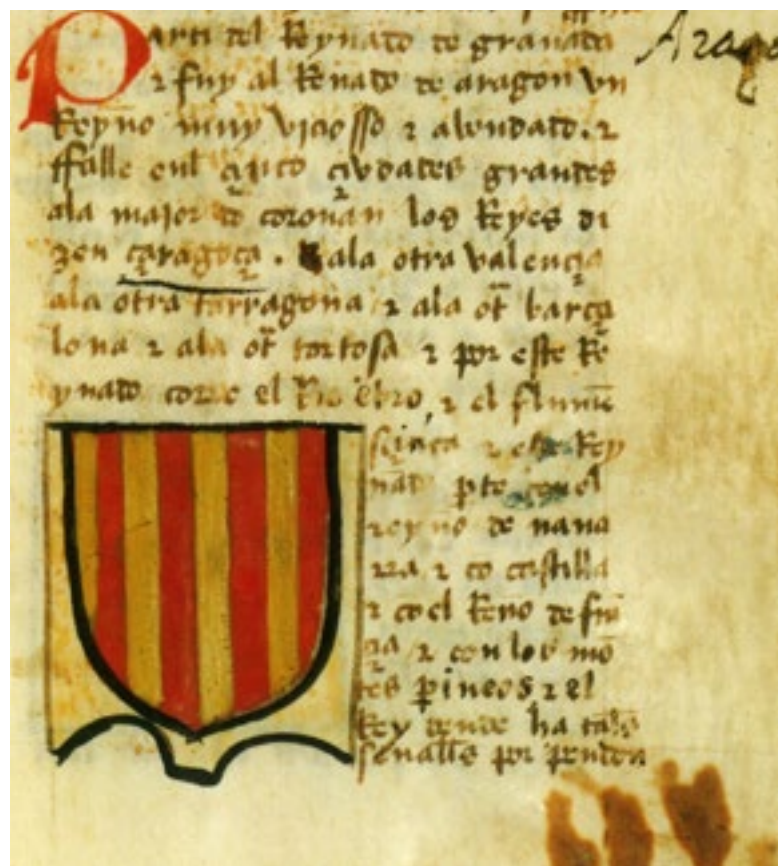 Parti del Reynado de granada
Arago
⁊ fuy al Renado de aragon vn
Reyno muy viciosso ⁊ abondado. ⁊
ffalle enl çinco çiudades grandes
ala maior do coronan los Reyes di
zen çaragoça. ala otra valençia
ala otra tarragona ⁊ ala ot barçe
lona ⁊ ala ot tortosa ⁊ por este Re
ynado corre el Rio ebro, ⁊ el flumē
⁊ este Rey
nado pte con el
reyno de naua
rra ⁊ cō castilla
⁊ cō el Reno de frā
çia ⁊ con los mō
tes pineos ⁊ el
Rey dende ha tales
señalls por pendon